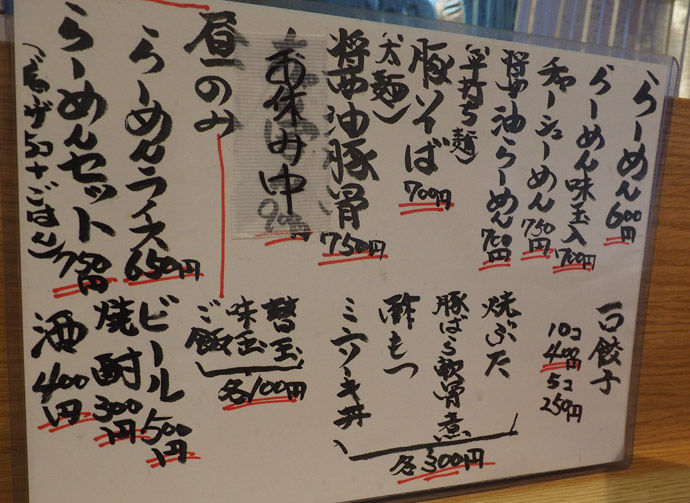 らーめん 600円
らーめん味玉入 700円
チャーシューめん 750円
醤油らーめん 700円
(平打ち麺)
豚そば 700円
(太麺)
醤油豚骨 750円
お休み中
昼のみ
らーめんライス 650円
らーめんセット 750円
(ギョーザ5コ+ごはん)
一口餃子
10コ 400円
5コ 250円
焼ぶた
豚ばら軟骨煮
酢もつ
ミニソーキ丼
各300円
替玉
味玉
ご飯
各100円
ビール 500円
焼酎 300円
酒 400円